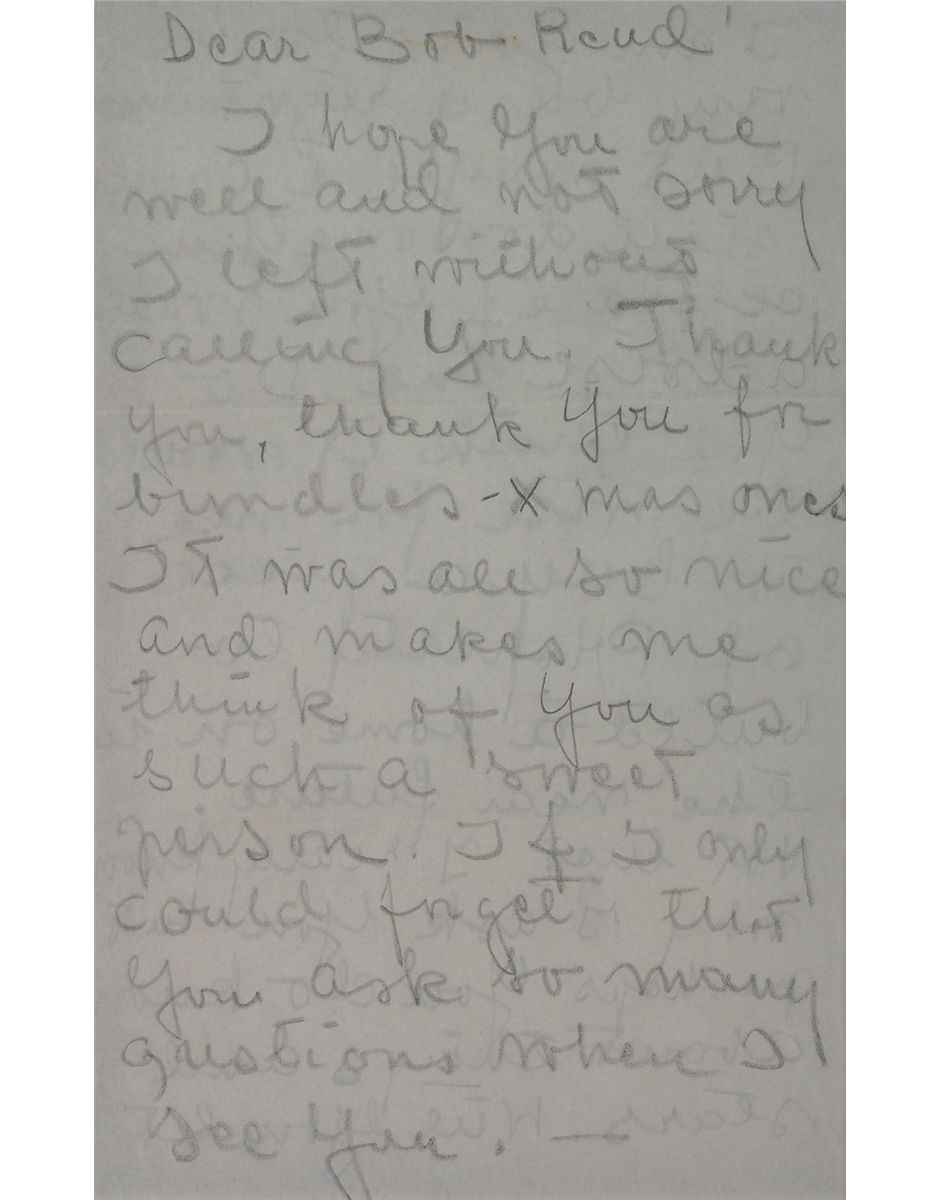 Dear Bob Reud!
I hope You are
well and not sorry
I left without
calling You. Thank
you, thank You for
bundles - X mas ones
IT was all so nice
and makes me
think of You as
such a sweet
person. If I only
could forget that
You ask so many
questions when I
see You. —